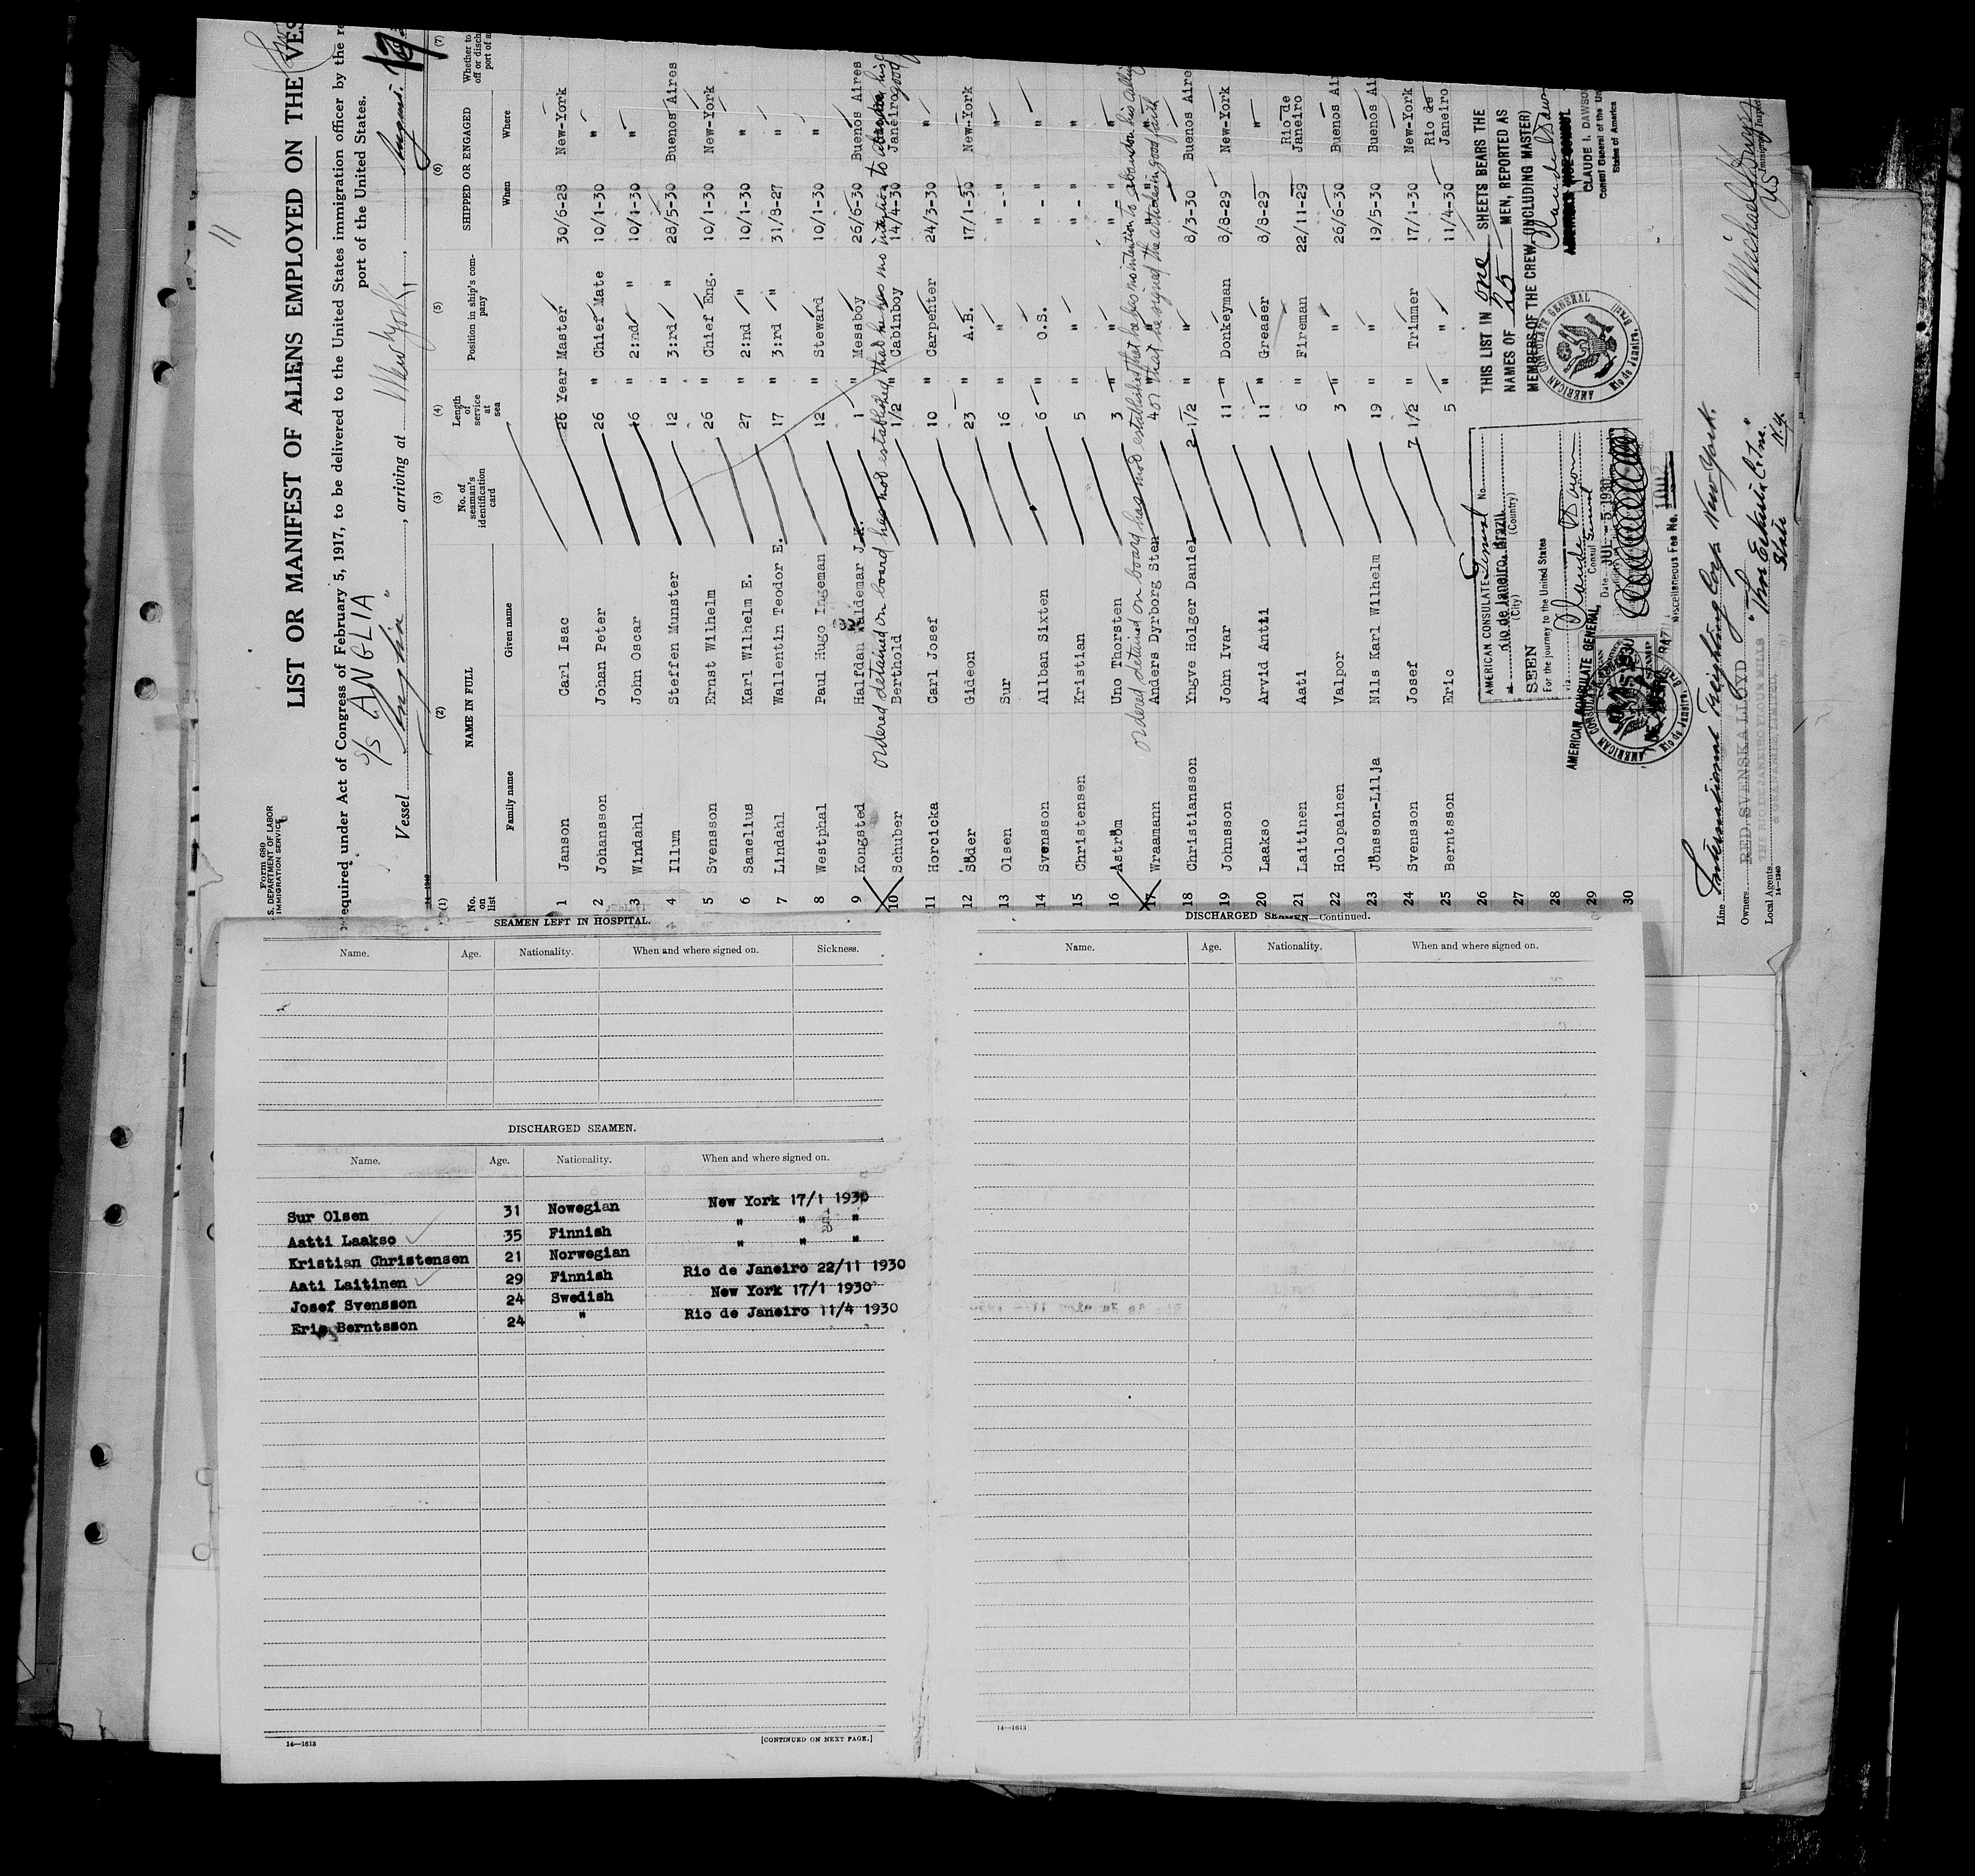 11
Form 680
S. DEPARTMENT OF LABOR
IMMIGRATION SERVICE
LIST OR MANIFEST OF ALIENS EMPLOYED ON THE VES
equired under Act of Congress of February 5, 1917, to be delivered to the United States immigration officer by the re
port of the United States.
S/S ANGLIA
Vessel "Anglia", arriving at New York, August 19
(1) (2) (3) (4) (5) (6) (7)
No. on list NAME IN FULL No. of seaman's identification card Length of service at sea Position in ship's company SHIPPED OR ENGAGED Whether to off or disch port of a
Family name Given name When Where
1 Janson Carl Isac 26 Year Master 30/6-28 New-York
2 Johansson Johan Peter 26 " Chief Mate 10/1-30 "
3 Windahl John Oscar 16 " 2:nd " 10/1-30 "
4 Illum Steffen Munster 12 " 3:rd " 28/5-30 Buenos Aires
5 Svensson Ernst Wilhelm 26 " Chief Eng. 10/1-30 New-York
6 Samelius Karl Wilhelm E. 27 " 2:nd " 10/1-30 "
7 Lindahl Wallentin Teodor E. 17 " 3:rd " 31/8-27 "
8 Westphal Paul Hugo Ingeman 12 " Steward 10/1-30 "
9 Kongsted Halfdan Valdemar J.K. 1 " Messboy 26/6-30 Buenos Aires
ordered detained on board has not established that he has no intention to abandon his
10 Schuber Berthold 1/2 " Cabinboy 14/4-30 Janeiro good
11 Horcicka Carl Josef 10 " Carpenter 24/3-30 "
12 Söder Gideon 23 " A.B. 17/1-30 New-York
13 Olsen Sur 16 " " "-" "
14 Svensson Allban Sixten 6 " O.S. "-" "
15 Christensen Kristian 5 " " "-" "
16 Aström Uno Thorsten 3 " " "-" "
ordered detained on board has not established that he has no intention to abandon his calling
or that he signed the articles in good faith
17 Wraamann Anders Dyrborg Sten 4 " " "
18 Christiansson Yngve Holger Daniel 2 1/2 " " 8/3-30 Buenos Aire
19 Johnsson John Ivar 11 " Donkeyman 8/8-29 New-York
20 Laakso Arvid Antti 11 " Greaser 8/8-29 "
21 Laitinen Aati 6 " Fireman 22/11-29 Rio de Janeiro
22 Holopainen Valpor 3 " " 26/6-30 Buenos Ai
23 Jönsson-Lilja Nils Karl Wilhelm 19 " " 19/5-30 Buenos Ai
24 Svensson Josef 7 1/2 " Trimmer 17/1-30 New-York
25 Berntsson Eric 5 " " 11/4-30 Rio de Janeiro
26
27
28
29
30
THIS LIST IN one SHEETS BEARS THE
NAMES OF 25 MEN, REPORTED AS
MEMBERS OF THE CREW (INCLUDING MASTER)
CLAUDE I. DAWSON
Consul General of the Un
States of America
AMERICAN CONSULATE GENERAL
Rio de Janeiro, Brazil
AMERICAN CONSULATE General No.
at Rio de Janeiro, Brazil
(City) (Country)
SEEN
For the journey to the United States
via
Consul General
Date JUL - 5 1930
Miscellaneous Fee No. 1002
AMERICAN CONSULATE GENERAL
Rio de Janeiro, Brazil
Line International Freighting Corp. New York.
Owners RED. SVENSKA LLOYD
THE RIO DE JANEIRO FLOUR MILLS
Local Agents
14-1240
State N.Y.
Immigrant Inspec
SEAMEN LEFT IN HOSPITAL.
Name. Age. Nationality. When and where signed on. Sickness.
DISCHARGED SEAMEN.
Name. Age. Nationality. When and where signed on.
Sur Olsen 31 Nowegian New York 17/1 1930
Aatti Laakso 35 Finnish " " "
Kristian Christensen 21 Norwegian " " "
Aati Laitinen 29 Finnish Rio de Janeiro 22/11 1930
Josef Svensson 24 Swedish New York 17/1 1930
Eric Berntsson 24 " Rio de Janeiro 11/4 1930
14—1613
[CONTINUED ON NEXT PAGE.]
DISCHARGED SEAMEN—Continued.
Name. Age. Nationality. When and where signed on.
14—1613